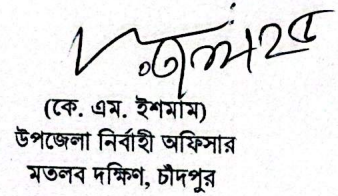 (কে. এম. ইশমাম)
উপজেলা নির্বাহী অফিসার
মতলব দক্ষিণ, চাঁদপুর